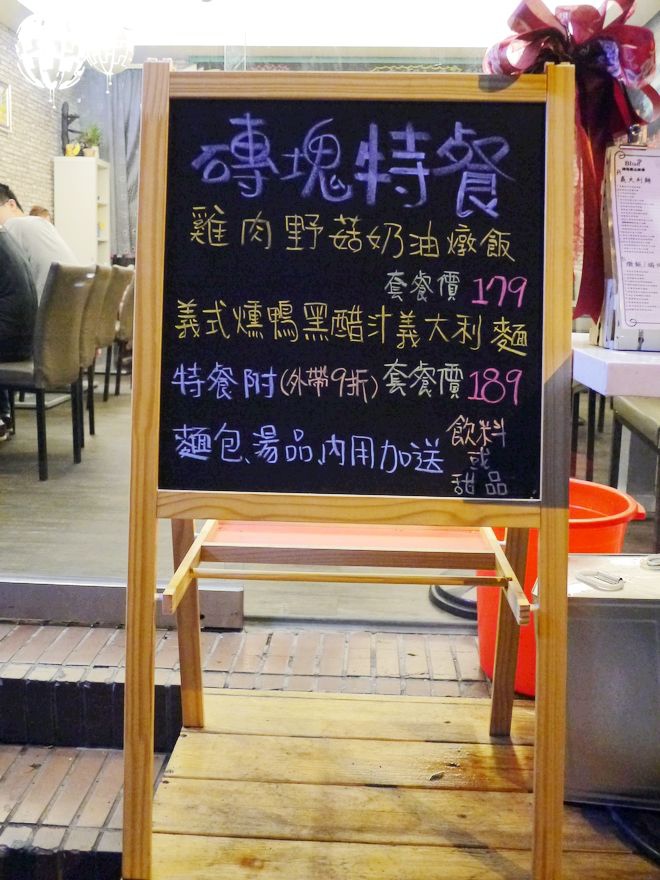 磚塊特餐
雞肉野菇奶油燉飯
套餐價 179
義式燻鴨黑醋汁義大利麵
特餐附(外帶9折) 套餐價 189
麵包、湯品、內用加送 飲料
或
甜品
Blue
義大利麵